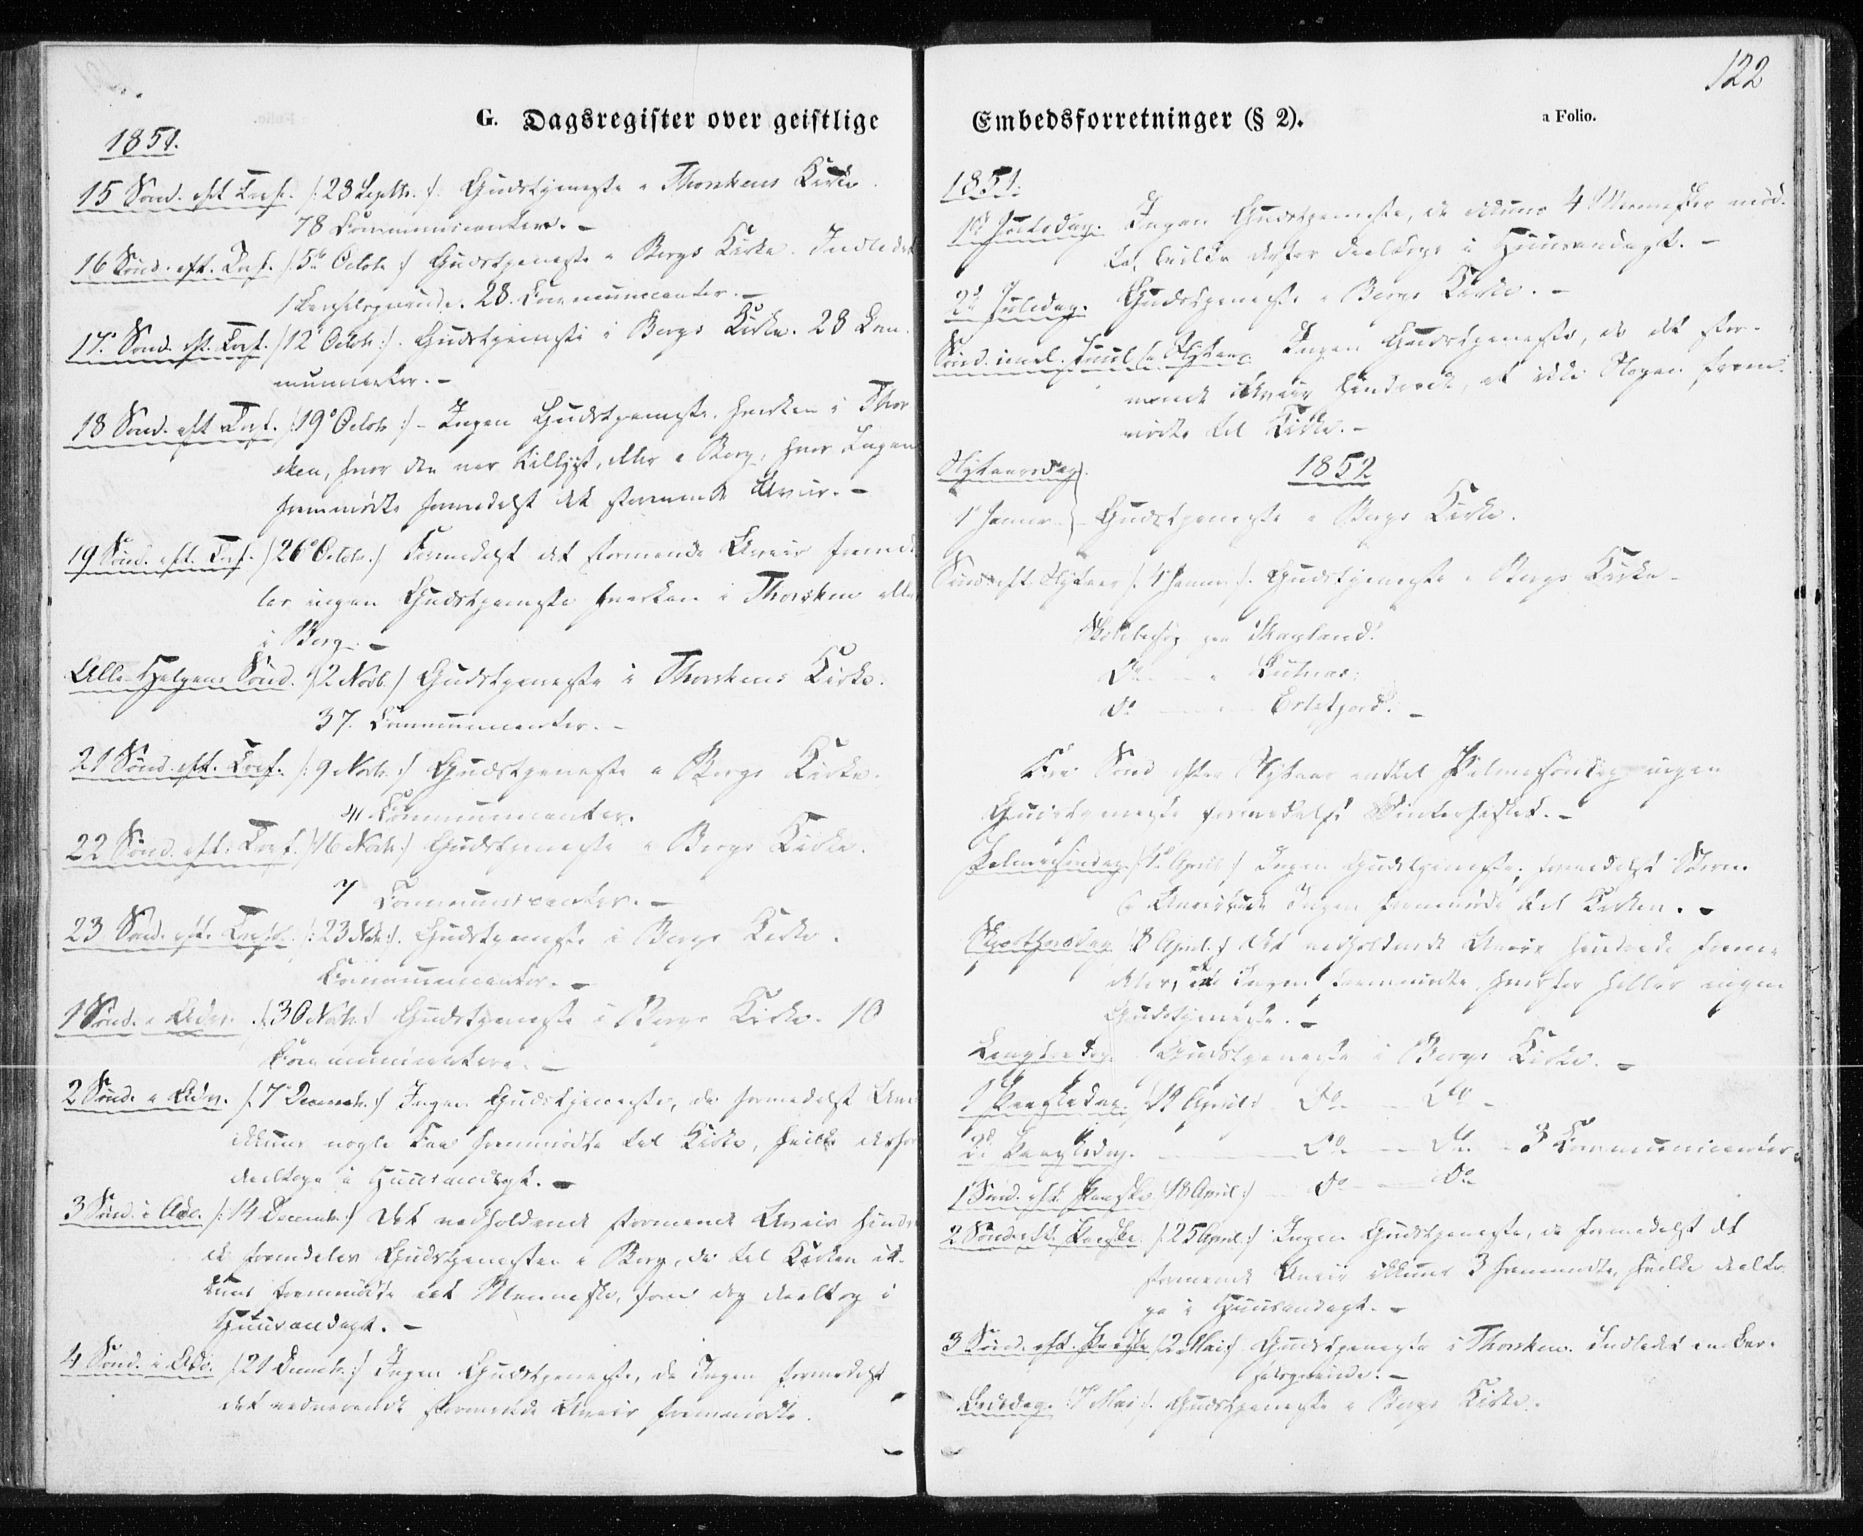 G. Dagsregister over geistlige
1851.
15 Sønd. eft. Tref. /: 28 Septbr. :/ Gudstjeneste i Thorskens Kirke.
78 Communicantere. –
16 Sønd. eft. Tref. /: 5te Octob :/ Gudstjeneste i Bergs Kirke. Indledet
1 Barselqvinde. 28 Communicanter. –
17. Sønd. eft. Tref. /: 12 Octob :/. Gudstjeneste i Bergs Kirke. 28 Com-
municanter. –
18 Sønd. eft Tref. /: 19 Octob :/ – Ingen Gudstjeneste hverken i Thor
sken, hvor den var tillyst, eller i Berg, hvor Ingen
fremmødte formedelst det stormende Uveir. –
19 Sønd. eft. Tref. /: 26 Octob. :/ Formedelst det stormende Uveir
ingen Gudstjeneste hverken i Thorsken
i Berg. –
Alle Helgens Sønd. /: 2 Novb. :/ Gudstjeneste i Thorskens Kirke.
37. Communicanter. –
21 Sønd. eft. Tref. /: 9 Novb. :/ Gudstjeneste i Bergs Kirke.
Communicanter.
22 Sønd. eft. Tref. /: 16 Novb :/ Gudstjeneste i Bergs Kirke.
7 Communicanter. –
23 Sønd. eft. Tref. /: 23 Novb :/. Gudstjeneste i Bergs Kirke.
Communicanter. –
1 Sønd. i Adv. /: 30 Novb :/ Gudstjeneste i Bergs Kirke. 10
Communicantere. –
2 Sønd. i Adv. /: 7 Decemb. :/ Ingen Gudstjeneste, da formedelst
ikkuns nogle Faa fremmødte til Kirke, hvilke
deeltoge i Huusandagt. –
3 Sønd. i Adv. /: 14 Decemb. :/ Det vedholdende stormende Uveir
Gudstjenesten i Berg, da til Kirken ik-
kuns fremmødte eet Menneske, som dog deeltog i
Huusandagt. –
4 Sønd. i Adv. /: 21 Decemb. :/ Ingen Gudstjeneste, da Ingen formedelst
det vedvarende stormende Uveir fremmødte.
122
Embedsforretninger (§ 2).
a Folio.
1851.
1ste Juledag. Ingen Gudstjeneste, da ikkuns 4 Mennesker mød-
te, hvilke deeltoge i Huusandagt. –
2den Juledag. Gudstjeneste i Bergs Kirke. –
Sønd. imel. Juul & Nytaar. Ingen Gudstjeneste, da det stor-
mende Uveir hindrede, at ikke Nogen frem-
mødte til Kirke. –
Nytaarsdag 1852
1 Januar. Gudstjeneste i Bergs Kirke.
Sønd. eft. Nytaar /: 4 Januar :/. Gudstjeneste i Bergs Kirke –
Skolebesøg paa Skaland.
Do
do
Fra Sønd efter Nytaar indtil Palmesøndag ingen
Gudstjeneste formedelst Vinterfisket. –
Palmesøndag /: 4 April :/ Ingen Gudstjeneste, formedelst Storm
& Uveir Ingen fremmødte til Kirken. –
Skjærthorsdag /: 8 April :/ Det vedholdende Uveir hindrede
Ingen fremmødte, heller ingen
Gudstjeneste. –
Langfredag. Gudstjeneste i Bergs Kirke. –
1 Paaskedag. /: 11 April :/ Do – Do –
2d. Paaskedag. – Do – Do – 3 Communicanter.
1 Sønd. eft. Paaske /: 18 April :/ – Do – Do
2 Sønd. eft. Paaske /: 25 April :/ Ingen Gudstjeneste, da formedelst det
stormende Uveir ikkuns 3 fremmødte, hvilke deelto-
ge i Huusandagt. –
3 Sønd. eft. Paaske /: 2 Mai :/ Gudstjeneste i Thorsken. Indledet en Bar-
selqvinde. –
Bededag. /: 7 Mai :/. Gudstjeneste i Bergs Kirke.